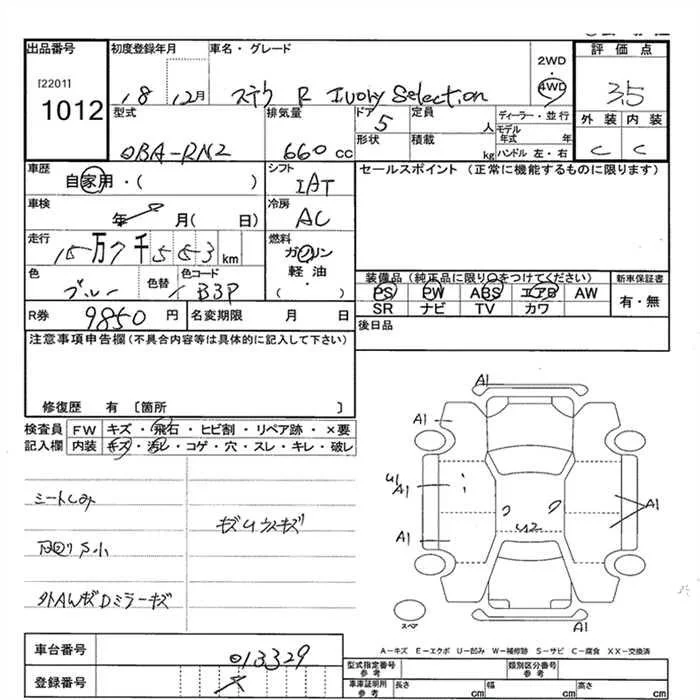 出品番号 初度登録年月 車名・グレード 2WD ・ 4WD 評価点
[2201]
1012 18 12月 ステラ R Ivory Selection 3.5
型式 排気量 ドア 定員 ディーラー・並行 外装 内装
5 人 モデル年式 年
OBA-RN2 660 cc 形状 積載 kg ハンドル 左・右 C C
車歴 シフト セールスポイント (正常に機能するものに限ります)
自家用・( ) IAT
車検 冷房
年 月( 日) AC
走行 燃料
15万7千563km ガソリン
色 色替 色コード 軽油・ 装備品(純正品に限り○をつけてください) 新車保証書
ブルー B3P ( ) PS PW ABS エアB AW 有・無
SR ナビ TV カワ
R券 9850円 名変期限 月 日 後日品
注意事項申告欄(不具合内容等は具体的に記入して下さい)
修復歴 有 〔箇所 〕
検査員 FW キズ・飛石・ヒビ割・リペア跡・×要
記入欄 内装 キズ・汚レ・コゲ・穴・スレ・キレ・破レ
A1
A1
U1
A1 A1
シートしみ
キズUウスキズ U2
下回りS小 A1
外AWキズDミラーキズ
スペア A1
A-キズ E-エクボ U-凹み W-補修跡 S-サビ C-腐食 XX-交換済
車台番号 013329
型式指定番号 参考 類別区分番号 参考
登録番号 車庫証明用 参考 長さ cm 幅 cm 高さ cm